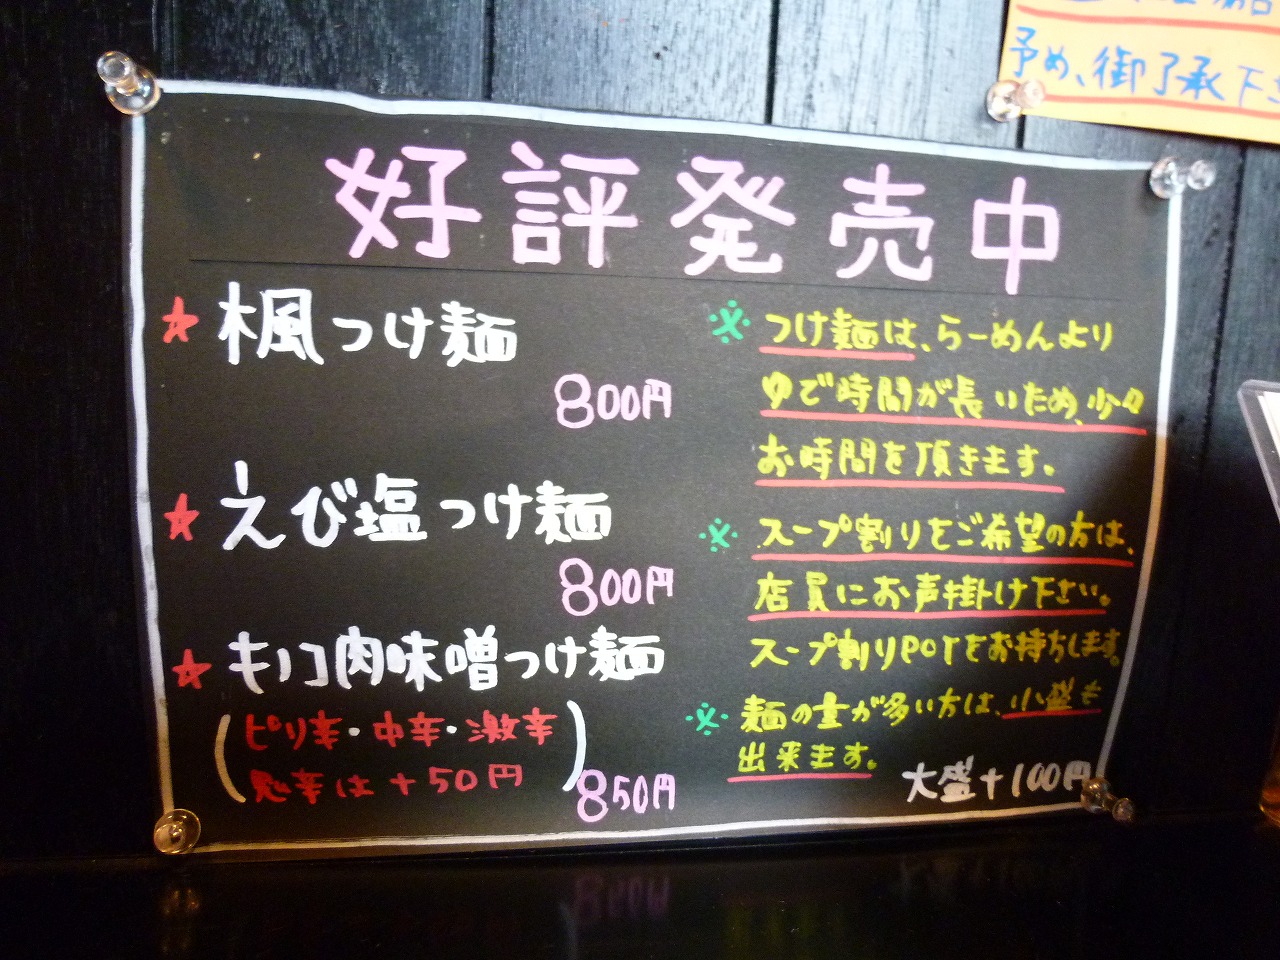 予め、御了承下
好評発売中
★楓つけ麺
800円
★えび塩つけ麺
800円
★キノコ肉味噌つけ麺
(ピリ辛・中辛・激辛
辛は+50円)
850円
※つけ麺は、らーめんより
ゆで時間が長いため、少々
お時間を頂きます。
※スープ割りをご希望の方は、
店員にお声掛け下さい。
スープ割りPOTをお持ちします。
※麺の量が多い方は、小盛も
出来ます。
大盛+100円